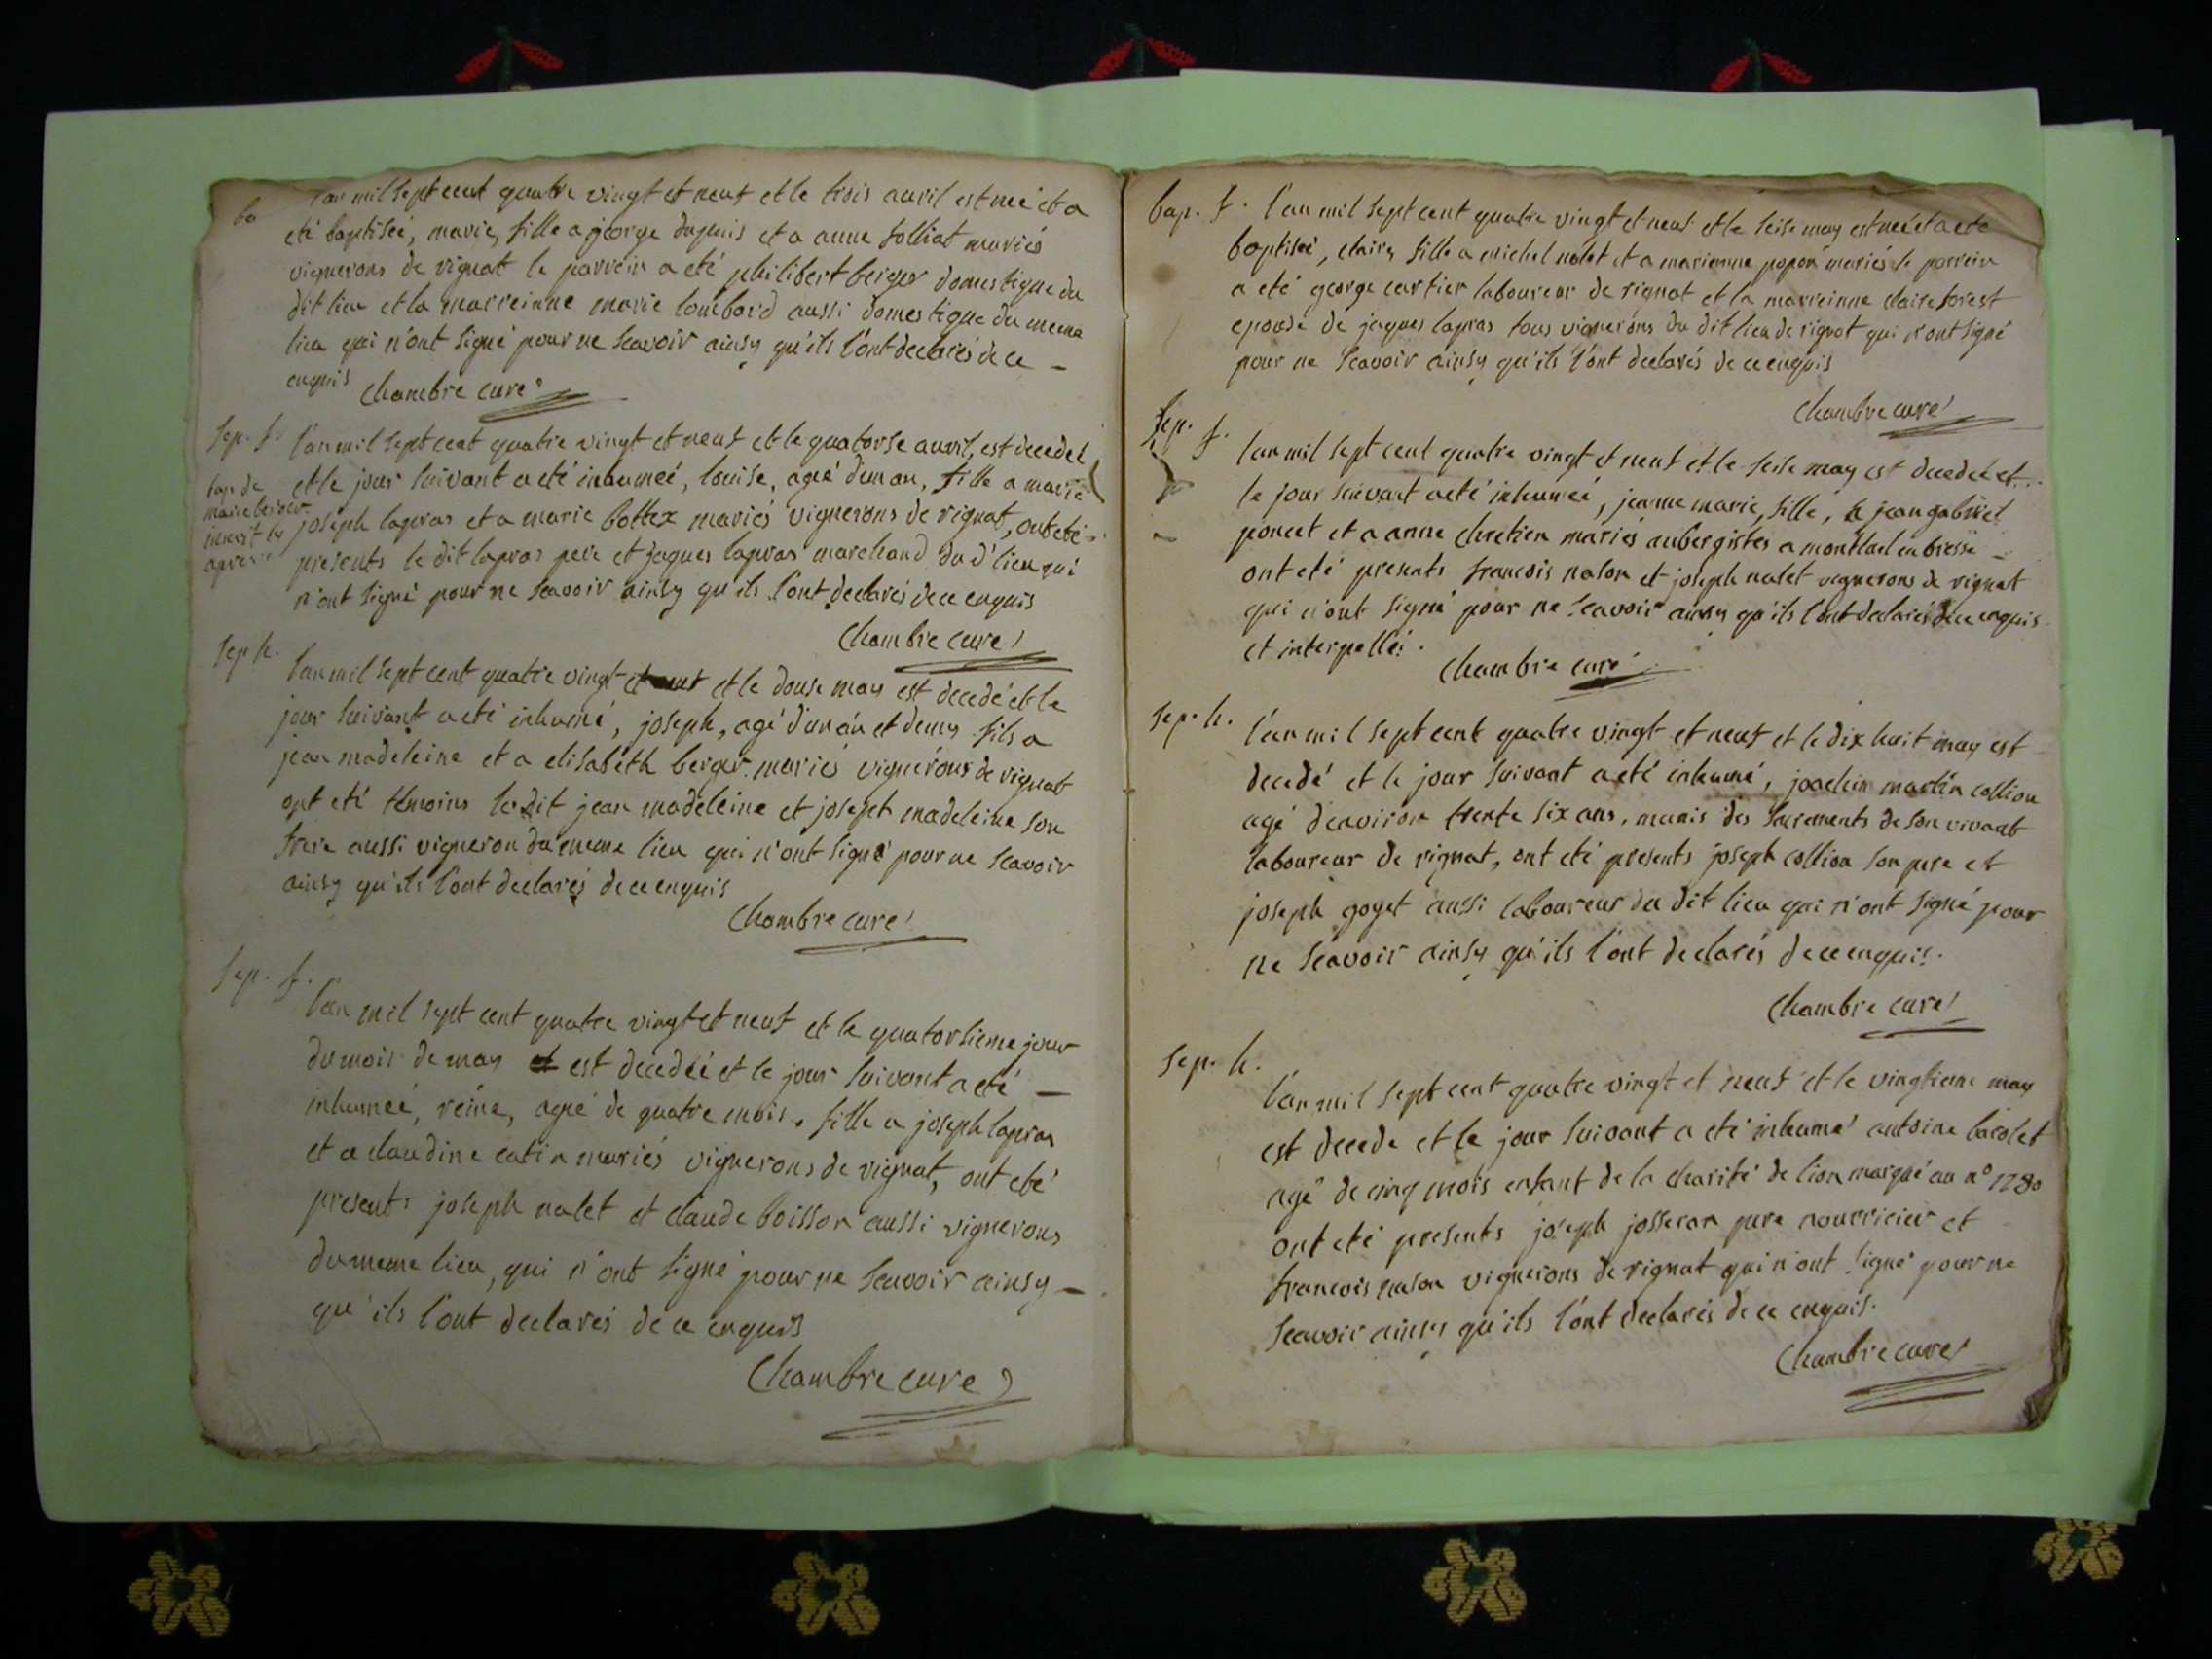 ba
l'an mil sept cent quatre vingt et neuf et le trois avril est neé et a
eté baptiseé, marie, fille a george dupuis et a anne folliat mariés
vignerons de rignat le parrein a eté philibert berger domestique du
dit lieu et la marreinne marie lombard aussi domestique du meme
lieu qui n'ont signé pour ne scavoir ainsy qu'ils l'ont declarés de ce -
enquis Chambre curé
sep. f. l'an mil sept cent quatre vingt et neuf et le quatorse avril, est decedeé
et le jour suivant a eté inhumeé, louise, ageé d'un an, fille a marie
bap. de
marie
inscrit cy
apres
joseph lapras et a marie bottex mariés vignerons de rignat, ont eté
presents le dit lapras pere et jaques lapras marchand du d' lieu qui
n'ont signé pour ne scavoir ainsy qu'ils l'ont declarés de ce enquis
Chambre curé
sep h.
l'an mil sept cent quatre vingt et neuf et le douse may est decedé et le
jour suivant a eté inhumé, joseph, agé d'un an et demy fils a
jean madeleine et a elisabeth berger mariés vignerons de rignat
ont eté temoins le dit jean madeleine et joseph madeleine son
frere aussi vigneron du meme lieu qui n'ont signé pour ne scavoir
ainsy qu'ils l'ont declarés de ce enquis
Chambre curé
sep. f.
l'an mil sept cent quatre vingt et neuf et le quatorsieme jour
du mois de may est decedeé et le jour suivant a eté -
inhumeé, reine, ageé de quatre mois, fille a joseph lapras
et a claudine catin mariés vignerons de rignat, ont eté
presents joseph nalet et claude boisson aussi vignerons
du meme lieu, qui n'ont signé pour ne scavoir ainsy -
qu'ils l'ont declarés de ce enquis
Chambre curé
bap. f. l'an mil sept cent quatre vingt et neuf et le seise may est neé et a eté
baptiseé, claire, fille a michel nalet et a marianne popon mariés le parrein
a eté george cartier laboureur de rignat et la marreinne claire forest
epouse de jaques lapras tous vignerons du dit lieu de rignat qui n'ont signé
pour ne scavoir ainsy qu'ils l'ont declarés de ce enquis
Chambre curé
sep. f.
l'an mil sept cent quatre vingt et neuf et le seise may est decedeé et
le jour suivant a eté inhumeé, jeanne marie, fille, a jean gabriel
poncet et a anne chretien mariés aubergistes a montluel en bresse -
ont eté presents francois nason et joseph nalet vignerons de rignat
qui n'ont signé pour ne scavoir ainsy qu'ils l'ont declarés de ce enquis
et interpellés.
Chambre curé
sep. h.
l'an mil sept cent quatre vingt et neuf et le dix huit may est
decedé et le jour suivant a eté inhumé, joachin martin collion
agé d'environ trente six ans, munis des sacrements de son vivant
laboureur de rignat, ont eté presents joseph collion son pere et
joseph goyet aussi laboureur du dit lieu qui n'ont signé pour
ne scavoir ainsy qu'ils l'ont declarés de ce enquis.
Chambre curé
sep. h.
l'an mil sept cent quatre vingt et neuf et le vingtieme may
est decedé et le jour suivant a eté inhumé antoine bacolet
agé de cinq mois enfant de la charité de lion marqué au n° 1280
ont eté presents joseph josseran pere nourricier et
francois nason vignerons de rignat qui n'ont signé pour ne
scavoir ainsy qu'ils l'ont declarés de ce enquis.
Chambre curé